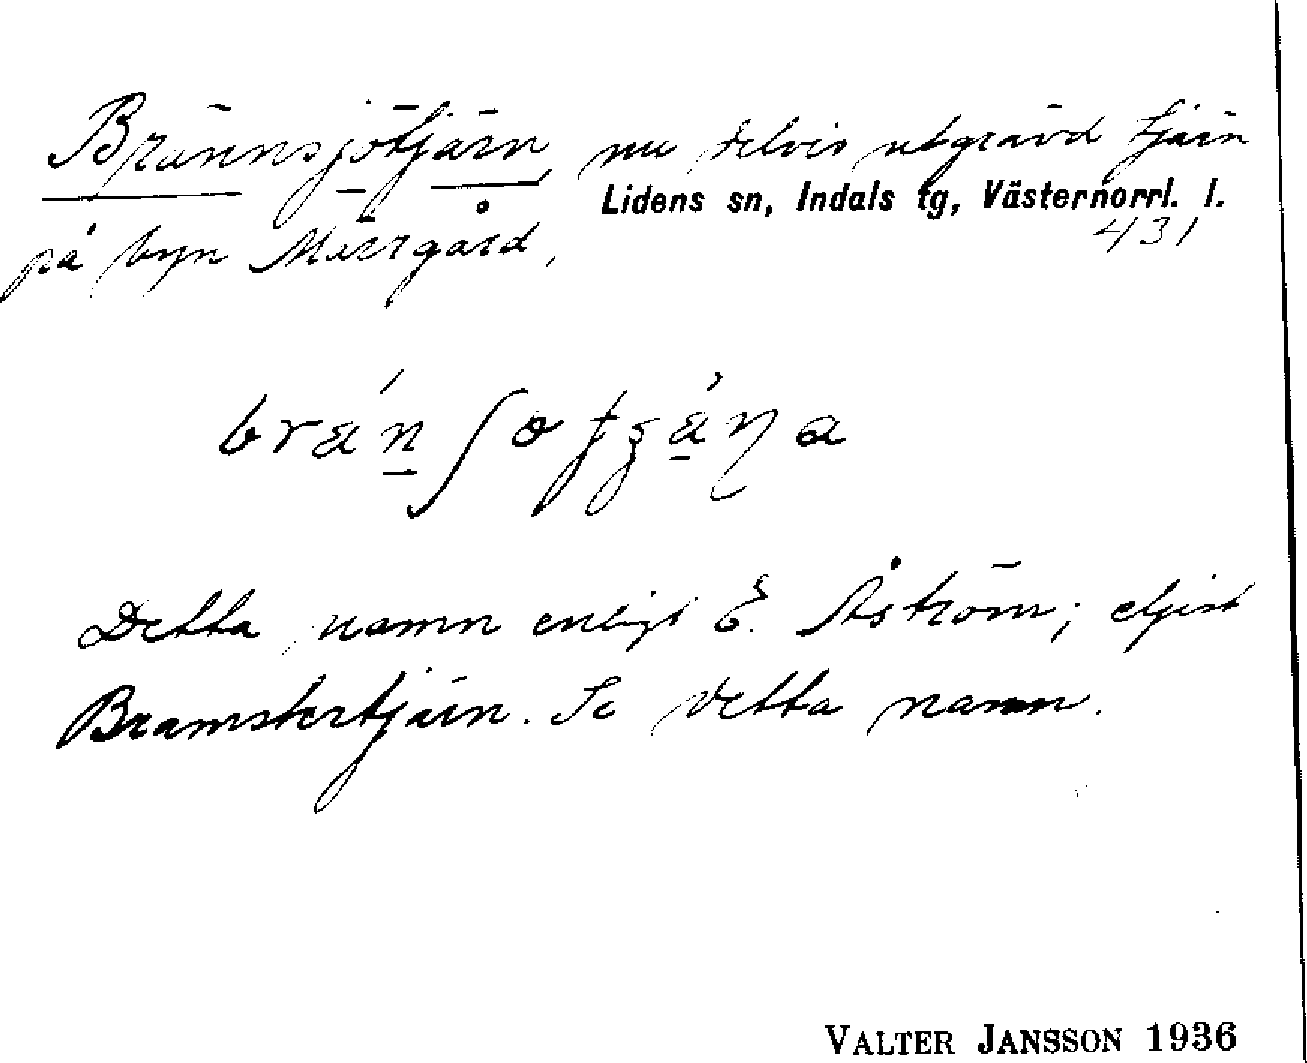 Brännsjötjärn, nu delvis utgrävd tjärn
Lidens sn, Indals tg, Västernorrl. l.
på byn Märrgård. 431
Detta namn enligt E. Åström; eljest
Bramstertjärn. Se detta namn.
VALTER JANSSON 1936